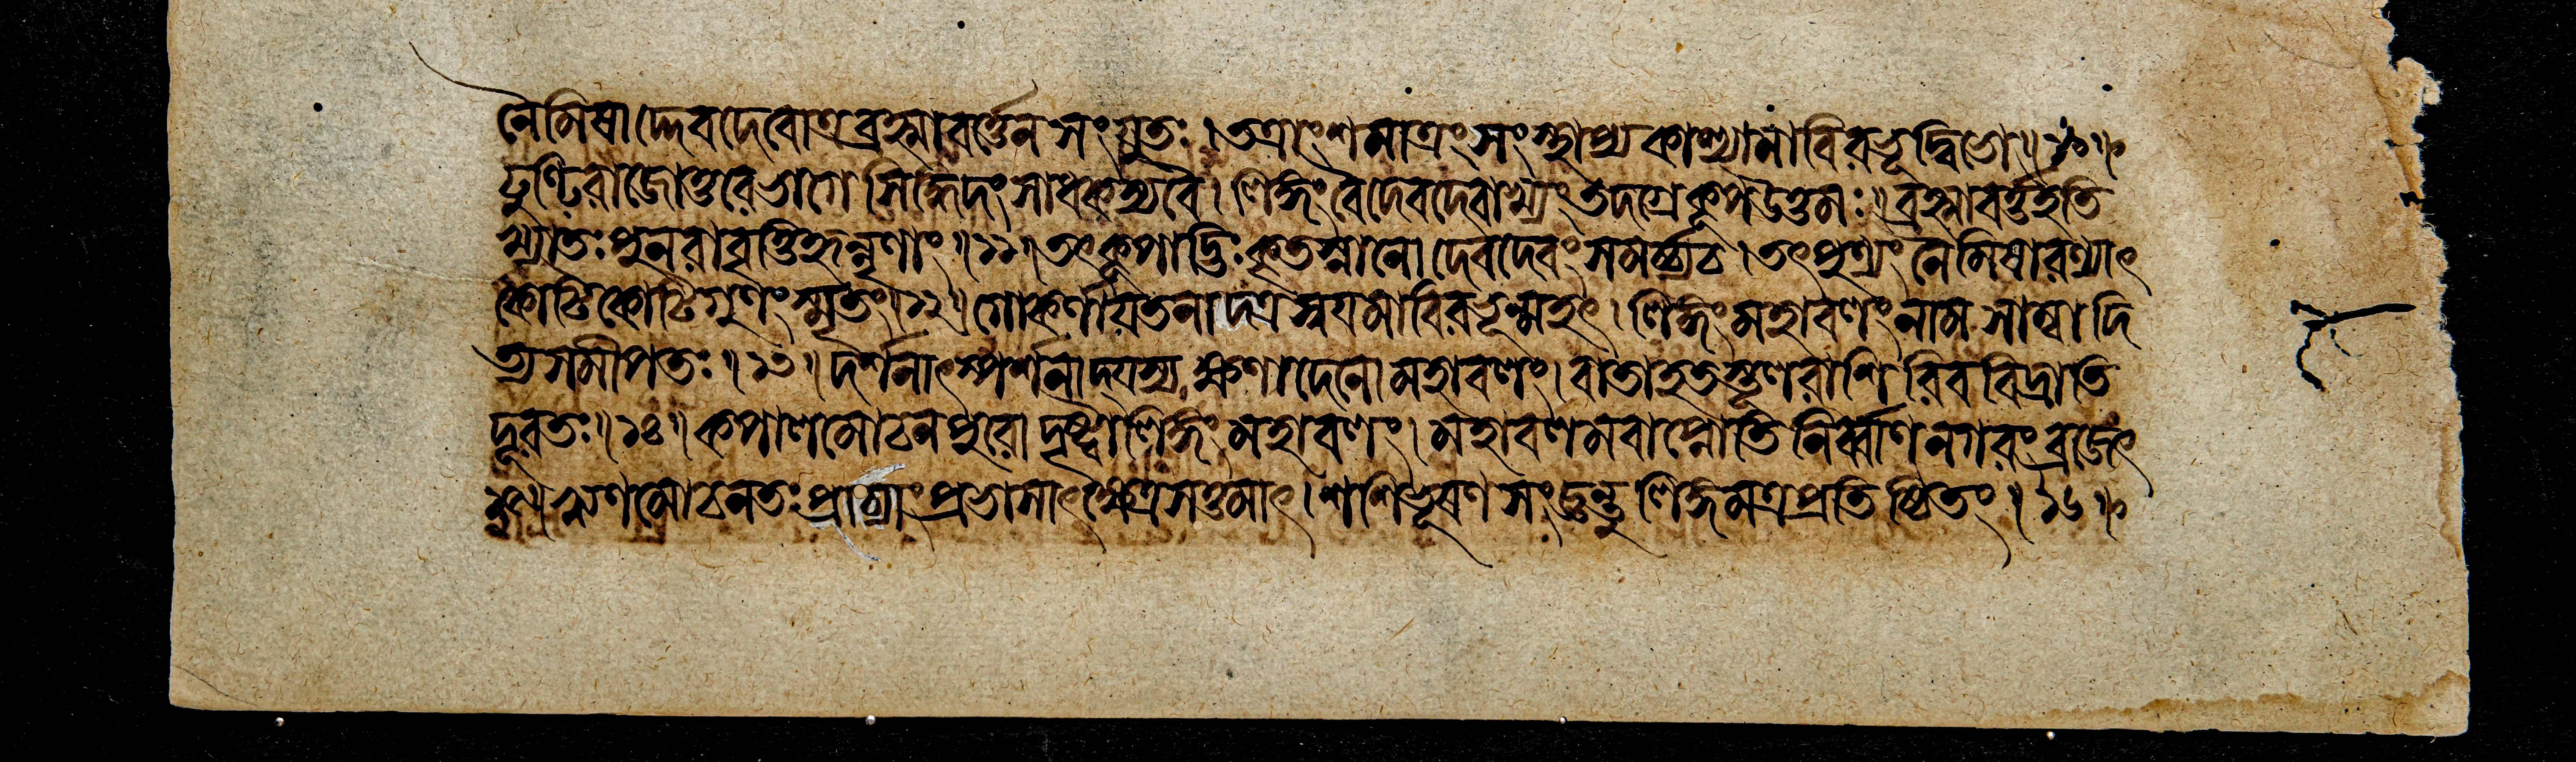 নৈমিষাদ্দেবদেবোত্রব্রহ্মাবর্ত্তেন সংযুতঃ। তত্রাংশমাত্রং সংস্থাপ্য কাশ্যামাবিরভূদ্বিভো॥১০॥
ঢুণ্ঢিরাজোত্তরেভাগে সিদ্ধিদং সাধকস্যবৈ। লিঙ্গং বৈদেবদেবাখ্যং তদগ্রেকূপউত্তমঃ॥ব্রহ্মাবর্ত্তইতি
খ্যাতঃ পুনরাবৃত্তিহৃন্নৃণাং॥১১॥তৎকূপাদ্ভিঃ কৃতস্নানো দেবদেবং সমর্চ্চ্যচ। তৎপুণ্যং নৈমিষারণ্যাৎ
কোটিকোটিগুণং স্মৃতং॥১২॥গোকর্ণায়তনাদত্র স্বয়মাবিরভূন্মহৎ। লিঙ্গং মহাবলং নাম সাম্বাদি
ত্যসমীপতঃ॥১৩॥ দর্শনাৎস্পর্শনাদ্যস্য ক্ষণাদেনো মহাবলং। বাতাহতস্তূলরাশিরিব বিদ্রাতি
দূরতঃ॥১৪॥ কপালমোচনপুরো দৃষ্ট্বালিঙ্গং মহাবলং। মহাবলমবাপ্নোতি নির্ব্বাণনগরং ব্রজেৎ
ঋণমোচনতঃ প্রাচ্যাং প্রভাসাৎক্ষেত্রসত্তমাৎ। শশিভূষণসংজ্ঞন্তু লিঙ্গমত্রপ্রতিষ্ঠিতং॥১৬॥